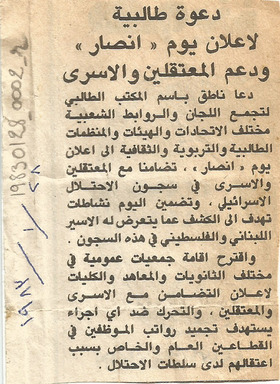 دعوة طالبية
لاعلان يوم « انصار »
ودعم المعتقلين والاسرى
دعا ناطق باسم المكتب الطالبي
لتجمع اللجان والروابط الشعبية
مختلف الاتحادات والهيئات والمنظمات
الطالبية والتربوية والثقافية الى اعلان
يوم « انصار » ، تضامنا مع المعتقلين
والاسرى في سجون الاحتلال
الاسرائيلي . وتضمين اليوم نشاطات
تهدف الى الكشف عما يتعرض له الاسير
اللبناني والفلسطيني في هذه السجون .
واقترح اقامة جمعيات عمومية في
مختلف الثانويات والمعاهد والكليات
لاعلان التضامن مع الاسرى
والمعتقلين ، والتحرك ضد أي اجراء
يستهدف تجميد رواتب الموظفين في
القطاعين العام والخاص بسبب
اعتقالهم لدى سلطات الاحتلال .
19830128_0002_2
١٩٨٣/١/٢٨